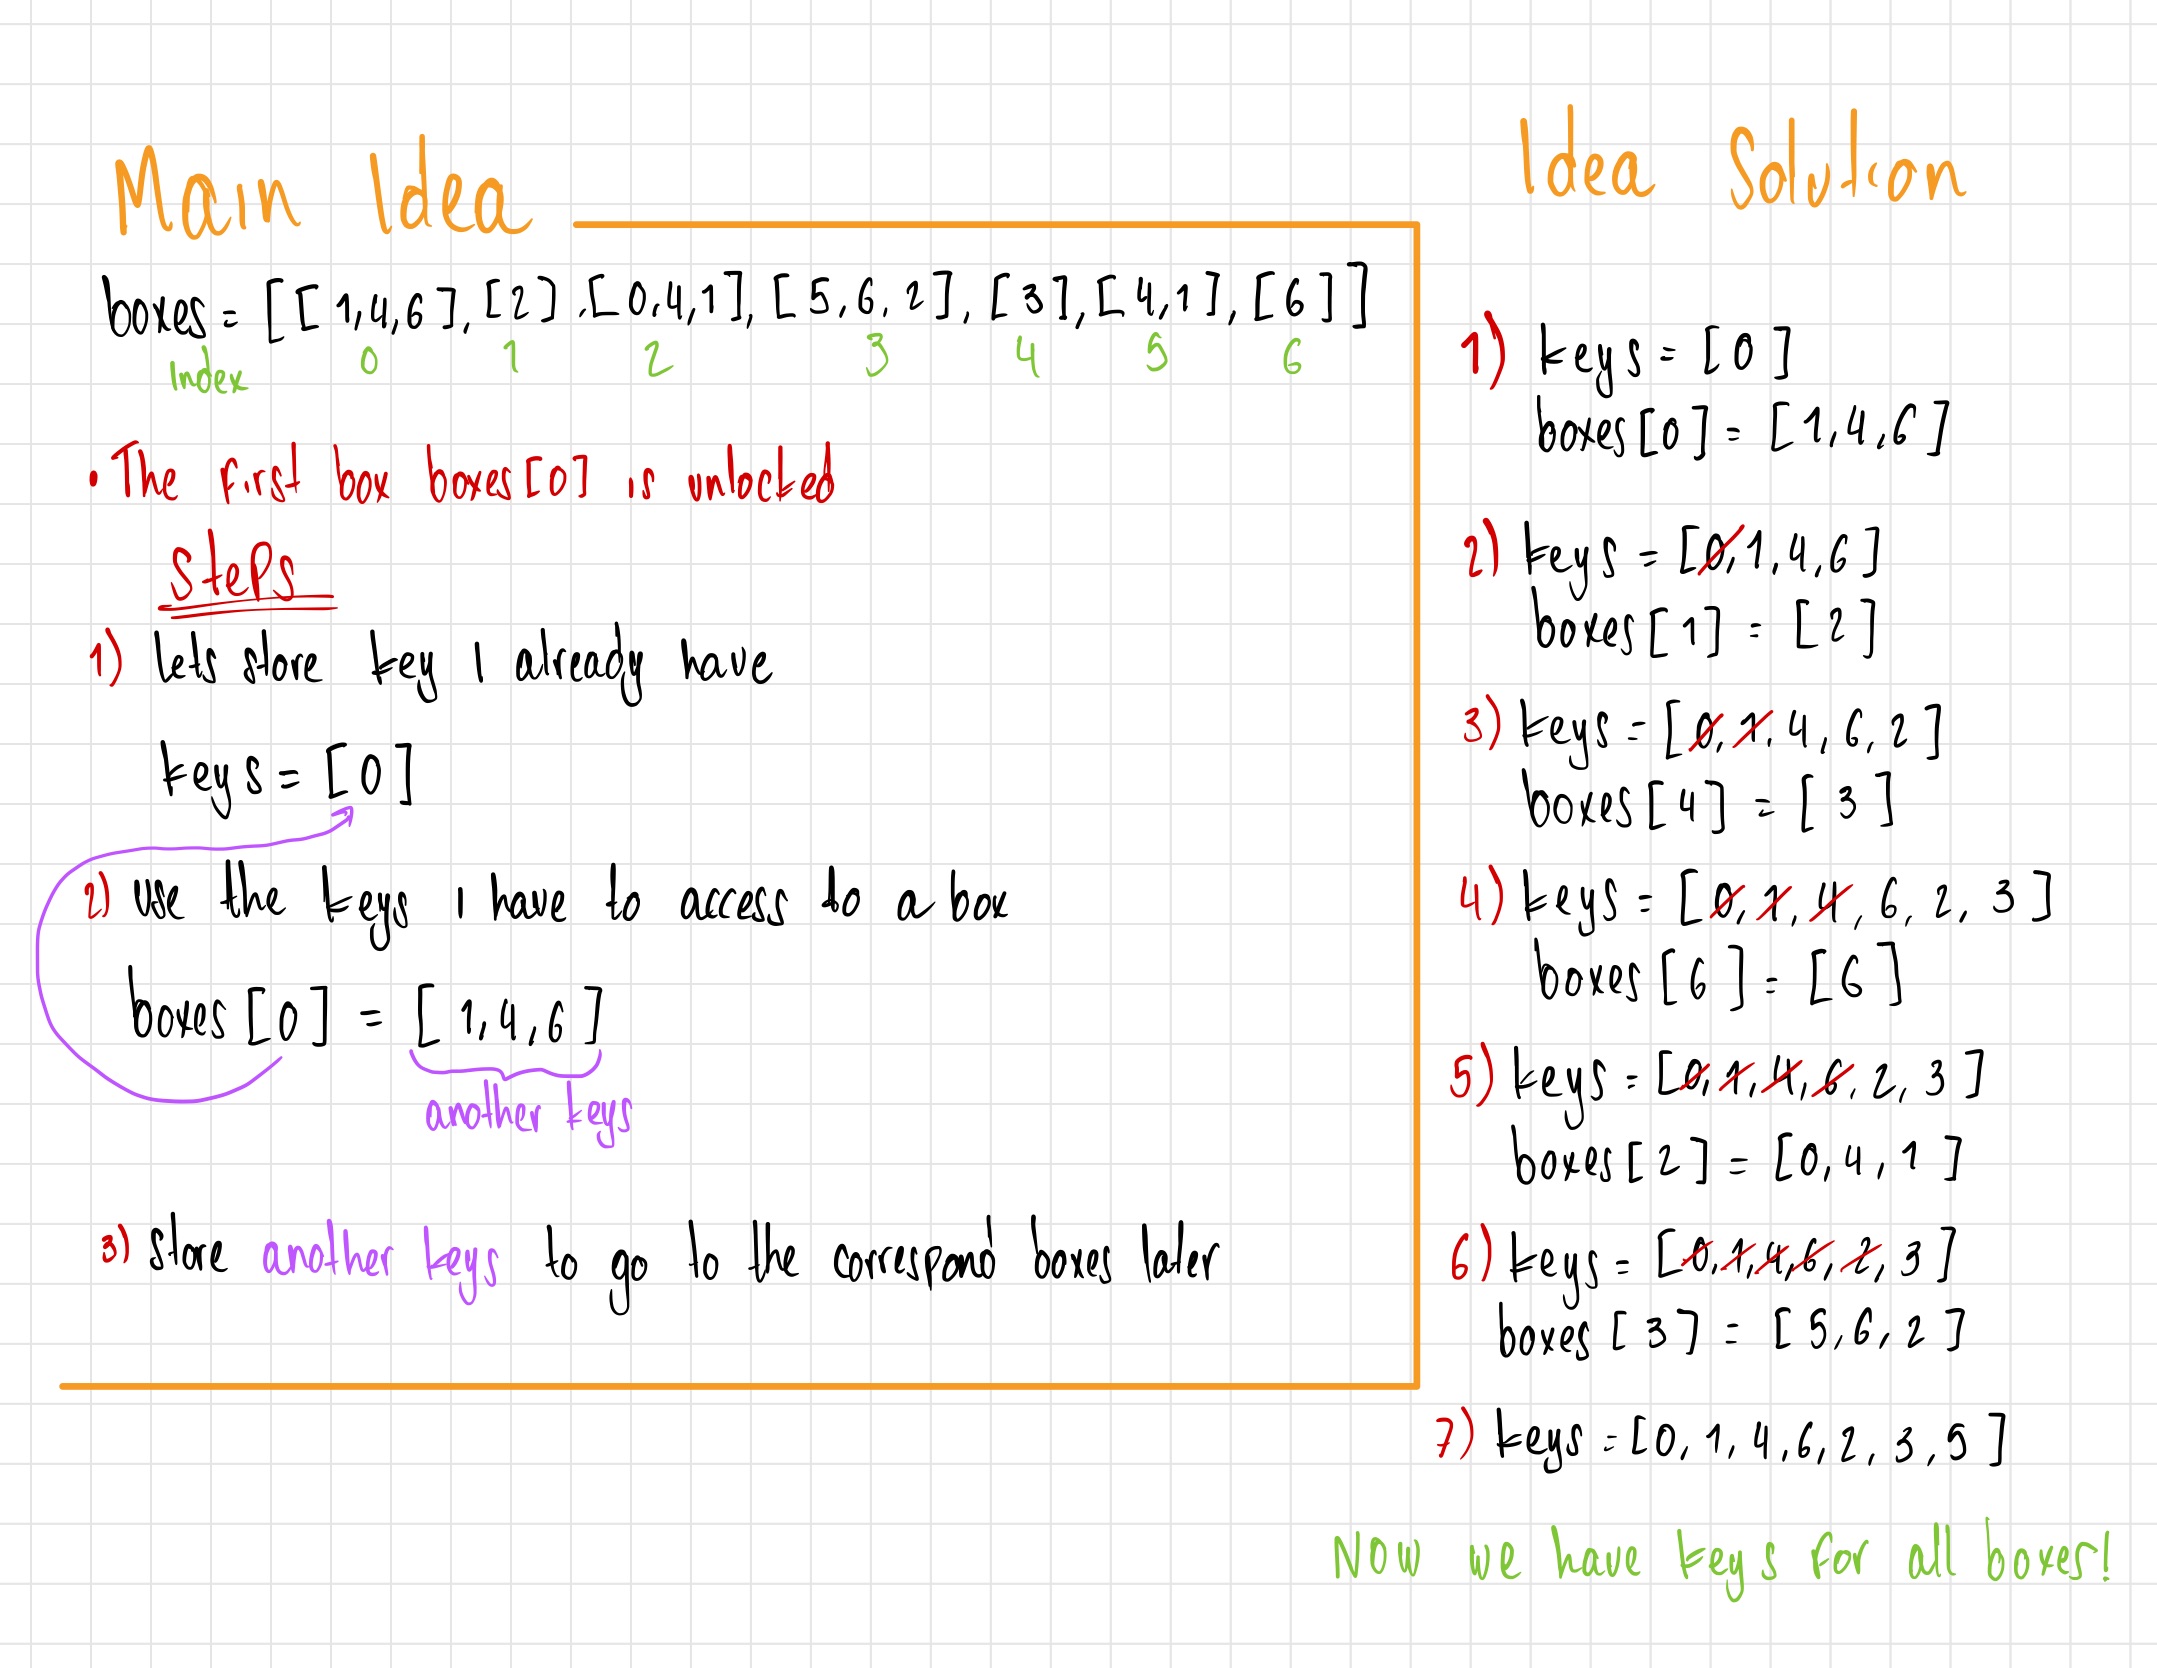 Main Idea
boxes = [[1,4,6], [2], [0,4,1], [5,6,2], [3], [4,1], [6]]
index 0 1 2 3 4 5 6
• The first box boxes[0] is unlocked
steps
1) lets store key I already have
keys = [0]
2) use the keys I have to access to a box
boxes[0] = [1,4,6]
another keys
3) store another keys to go to the correspond boxes later
Idea Solution
1) keys = [0]
boxes[0] = [1,4,6]
2) keys = [0,1,4,6]
boxes[1] = [2]
3) keys = [0,1,4,6,2]
boxes[4] = [3]
4) keys = [0,1,4,6,2,3]
boxes[6] = [6]
5) keys = [0,1,4,6,2,3]
boxes[2] = [0,4,1]
6) keys = [0,1,4,6,2,3]
boxes[3] = [5,6,2]
7) keys = [0,1,4,6,2,3,5]
Now we have keys for all boxes!